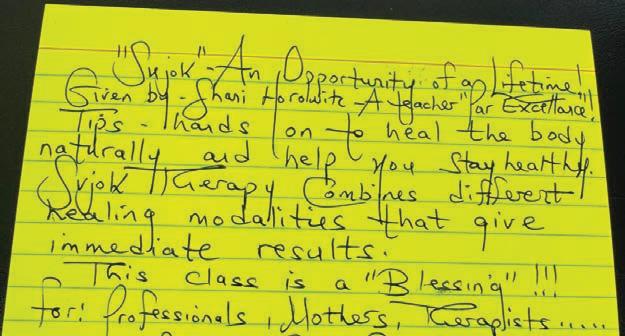 "Sujok" - An Opportunity of a lifetime!
Given by - Shani Horowitz - A teacher "Par Excellance"!
Tips - hands on to heal the body
naturally and help you stay healthy.
Sujok Therapy Combines different
healing modalities that give
immediate results.
This class is a "Blessing" !!!
for: Professionals, Mothers, Therapists.....